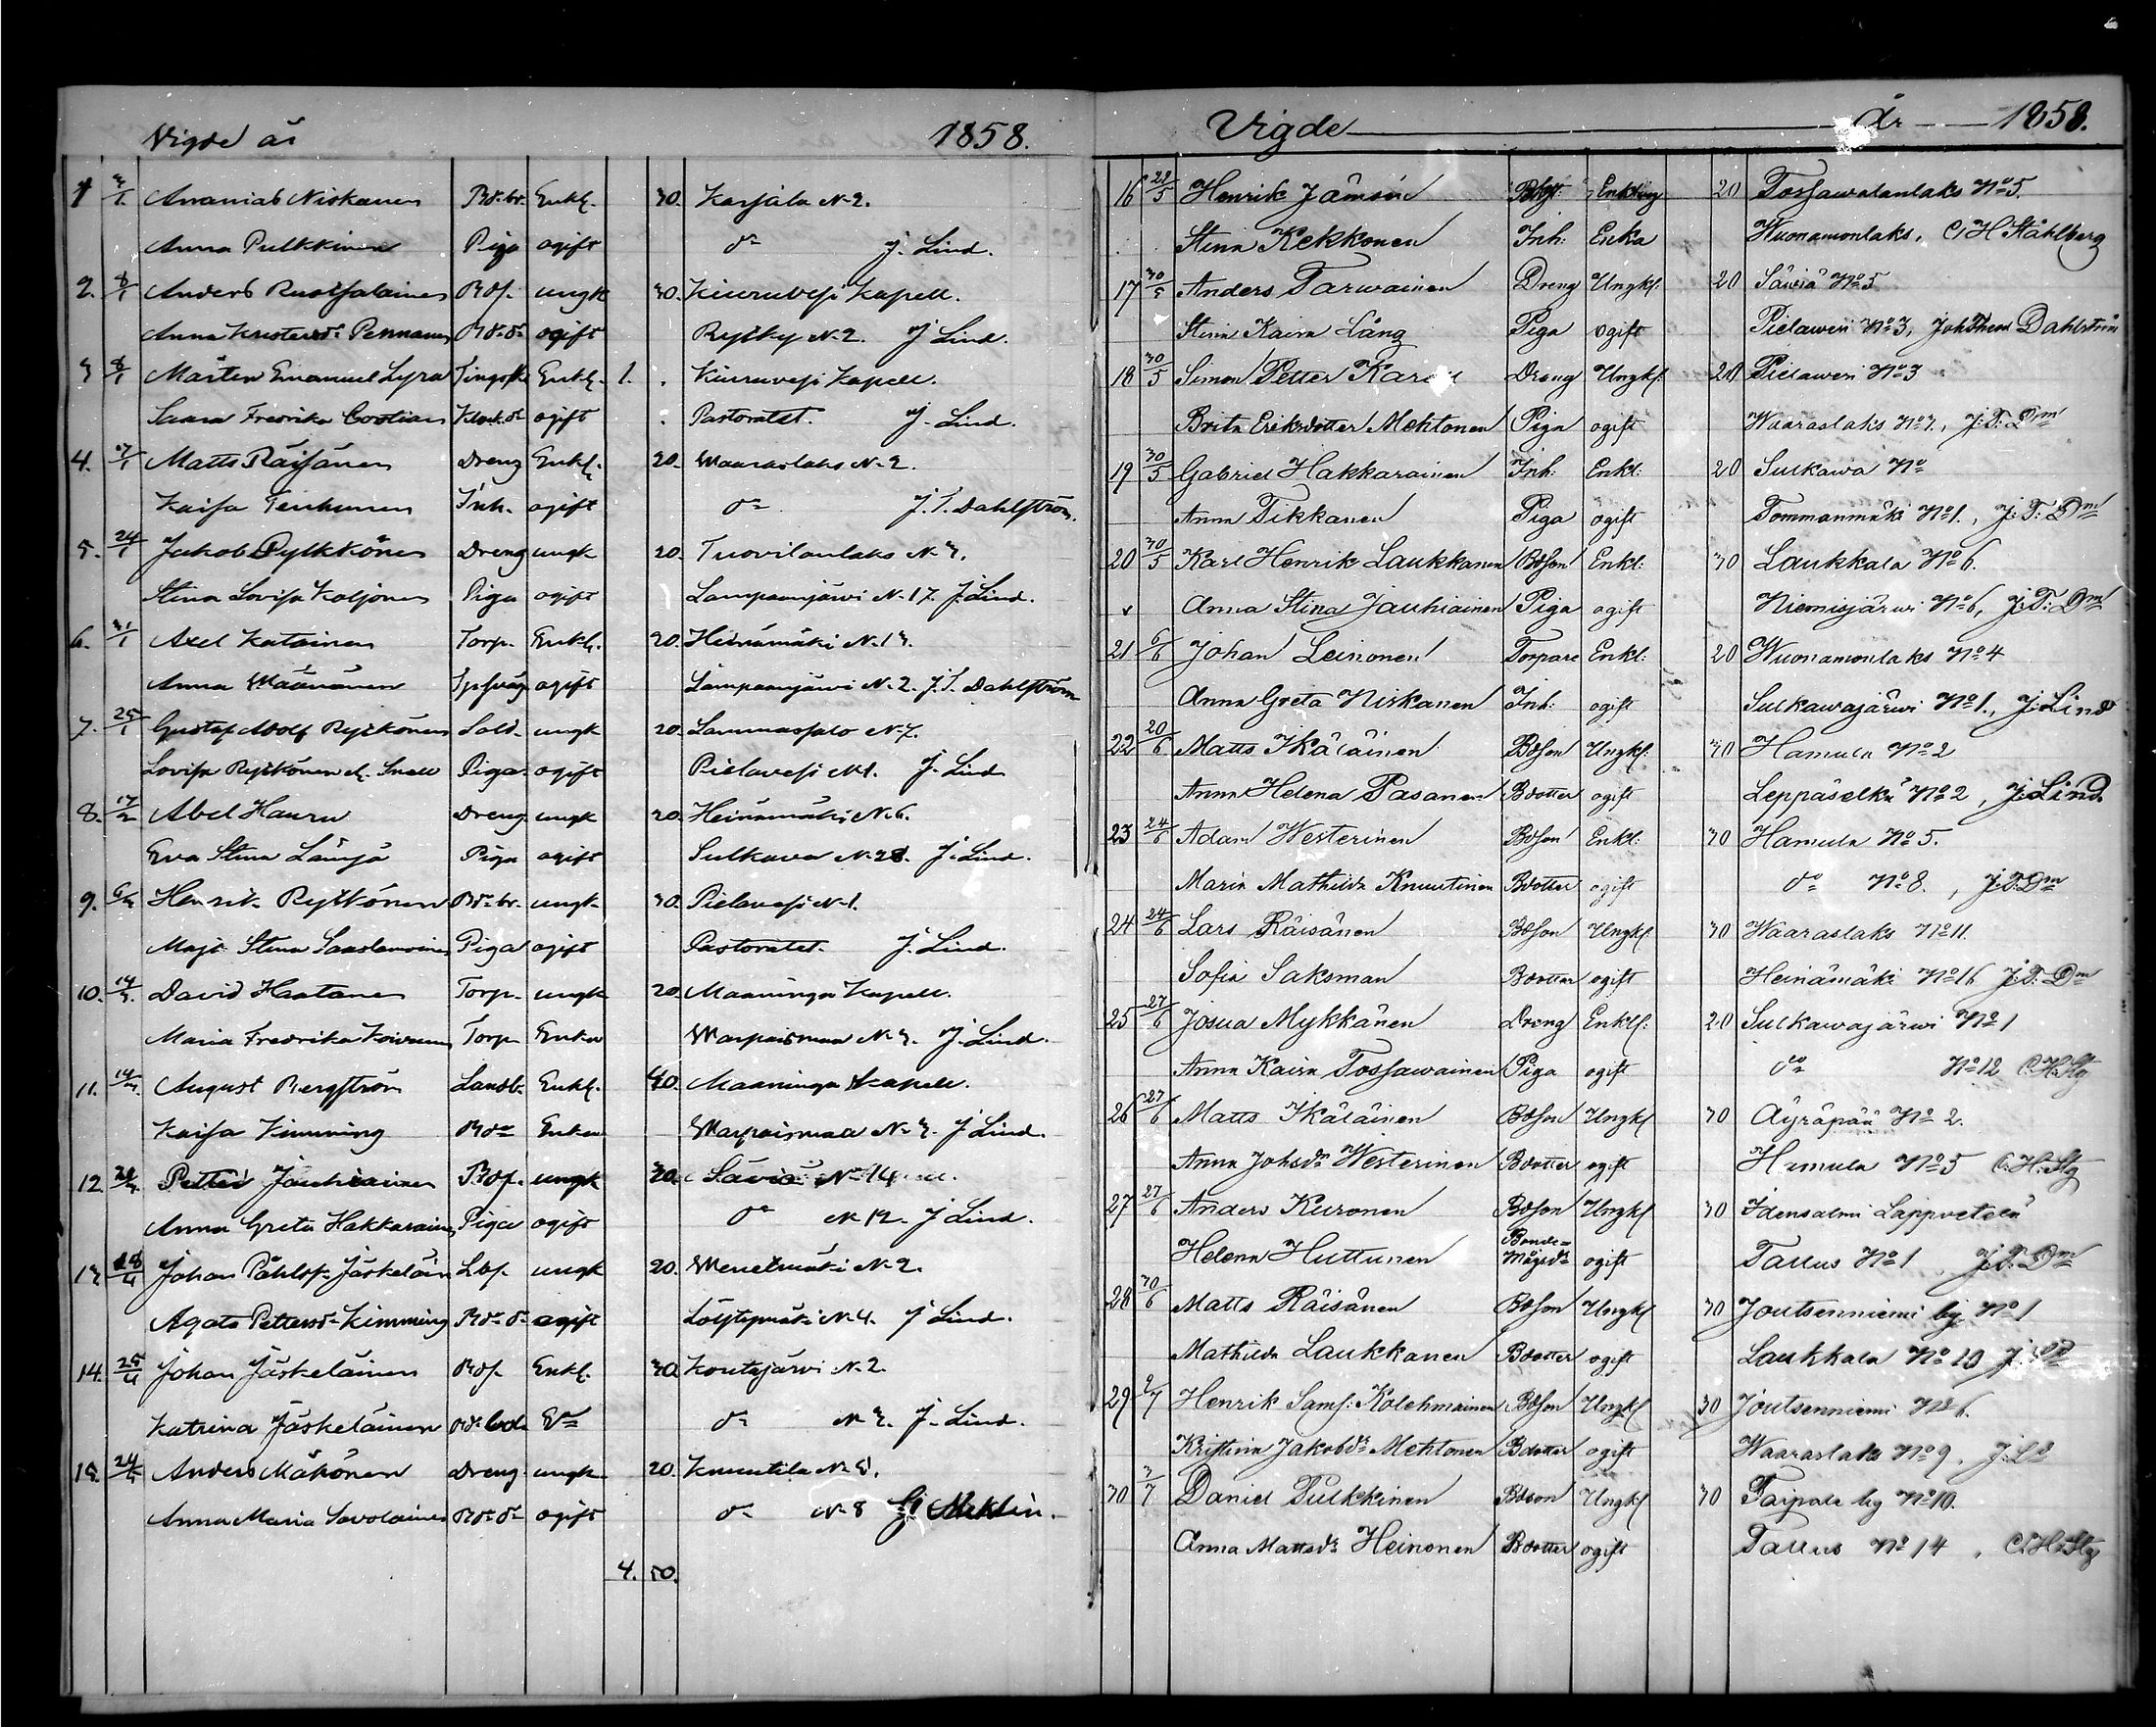 Vigde år 1858.
1 3/1 Ananias Niskanen Bd.br. Enkl. 30. Karjala N. 2.
Anna Pulkkinen Piga ogift do J. Lind.
2. 8/1 Anders Ruotsalainen Bds. ungk 30. Kiuruvesi Kapell.
Anna Kristersdr Pennanen Bd.dr ogift Rytky N. 2. J Lind.
3 8/1 Mårten Emanuel Lyra Enkl. 1. Kiuruvesi Kapell.
Saara Fredrika Costian Klock.dr ogift Pastoratet. J. Lind.
4. 17/1 Matts Räisänen Dreng Enkl. 20. Waaraslaks N. 2.
Kaisa Tenhunen Inh. ogift do J. T. Dahlström.
5. 24/1 Jakob Pylkkönen Dreng ungk 20. Tuovilanlaks N. 3.
Stina Lovisa Koljonen Piga ogift Lampaanjärvi N. 17. J. Lind.
6. 31/1 Axel Katainen Torp. Enkl. 20. Heinämäki N. 13.
Anna Väänänen ogift Lampaanjärvi N. 2. J. T. Dahlström
7. 25/1 Gustaf Adolf Rytkönen Sold. ungk 20. Lammassalo N. 7.
Lovisa Rytkönen el. Snell Piga ogift Pielavesi N. 1. J. Lind
8. 14/2 Abel Hauru Dreng ungk 20. Heinämäki N. 6.
Eva Stina Lämsä Piga ogift Sulkava N. 28. J. Lind.
9. Henrik Rytkönen Bd.br. ungk 30. Pielavesi N. 1.
Maja Stina Saastamoinen Piga ogift Pastoratet. J. Lind.
10. 14/3 David Haatanen Torp. ungk 20. Maaninga Kapell.
Maria Fredrika Koivunen Torp. Enka Warpaismaa N. 3. J. Lind.
11. 14/3 August Bergström Landb. Enkl. 40. Maaninga Kapell.
Kaisa Kimming Enka Warpaismaa N. 3. J Lind.
12. Petter Jauhiainen Bds. ungk 30. Säviä N. 14
Anna Greta Hakkarainen Piga ogift do N. 12. J Lind.
13. 18/4 Johan Påhls. Jäskeläin Lbs. ungk 20. Wenetmäki N. 2.
Agata Pettersdr Kimming Bd.dr ogift Löytynmäki N. 4. J Lind.
14. 25/4 Johan Jäskeläinen Bds. Enkl. 30. Koutajärvi N. 2.
Katrina Jäskeläinen do N. 3. J. Lind.
15. Anders Mäkönen Dreng ungk 20. Knuutila N. 8.
Anna Maria Savolainen Bd.dr ogift do N. 8
4. 50.
Vigde År 1858.
16 22/5 Henrik Jämsén Enkling 20 Tossawalanlaks No 5.
Stina Kekkonen Inh: Enka Wuonamonlaks, C H Ståhlberg
17 30/5 Anders Tarwainen Dreng Ungkl. 20 Säwiä No 5
Stina Kaisa Lång Piga ogift Pielawesi No 3, Joh Theod Dahlström
18 30/5 Simon Petter Dreng Ungkl: 20 Pielawesi No 3
Brita Eriksdotter Mehtonen Piga ogift Waaraslaks No 7., J: T: Dm
19 30/5 Gabriel Hakkarainen Inh: Enkl: 20 Sulkawa No
Anna Tikkanen Piga ogift Tommanmäki No 1., J: T: Dm
20 30/5 Karl Henrik Laukkanen Bdson Enkl: 30 Laukkala No 6.
Anna Stina Jauhiainen Piga ogift Niemisjärwi No 6, J: T: Dm
21 6/6 Johan Leinonen Torpare Enkl: 20 Wuonamonlaks No 4
Anna Greta Niskanen Inh: ogift Sulkawajärwi No 1., J: Lind
22 20/6 Matts Ikäläinen Bdson Ungkl: 30 Hamula No 2
Anna Helena Pasanen Bdotter ogift Leppäselkä No 2, J: Lind
23 24/6 Adam Westerinen Bdson Enkl: 30 Hamula No 5.
Maria Mathilda Knuutinen Bdotter ogift do No 8., J: T: Dm
24 24/6 Lars Räisänen Bdson Ungkl. 30 Waaraslaks No 11.
Sofia Saksman Bdotter ogift Heinämäki No 16 J: T: Dm
25 27/6 Josua Mykkänen Dreng Enkl: 20 Sulkawajärwi No 1
Anna Kaisa Tossawainen Piga ogift do No 12 C H Stg
26 27/6 Matts Ikäläinen Bdson Ungkl 30 Äyräpää No 2.
Anna Johsdr Westerinen Bdotter ogift Hamula No 5 C. H. Stg
27 27/6 Anders Kuronen Bdson Ungkl 30 Idensalmi Lappvetelä
Helena Huttunen Bonde= Mågsdr ogift Tallus No 1 J: T: Dm
28 30/6 Matts Räisänen Bdson Ungkl 30 Joutsenniemi by No 1
Mathilda Laukkanen Bdotter ogift Laukkala No 10
29 2/7 Henrik Sams: Kolehmainen Bdson Ungkl 30 Joutsenniemi No 6.
Kristina Jakobdr Mehtonen Bdotter ogift Waaraslaks No 9, J: Ld
30 3/7 Daniel Pulkkinen Bdson Ungkl 30 Taipale by No 10.
Anna Mattsdr Heinonen Bdotter ogift Tallus No 14, C. H. Stg